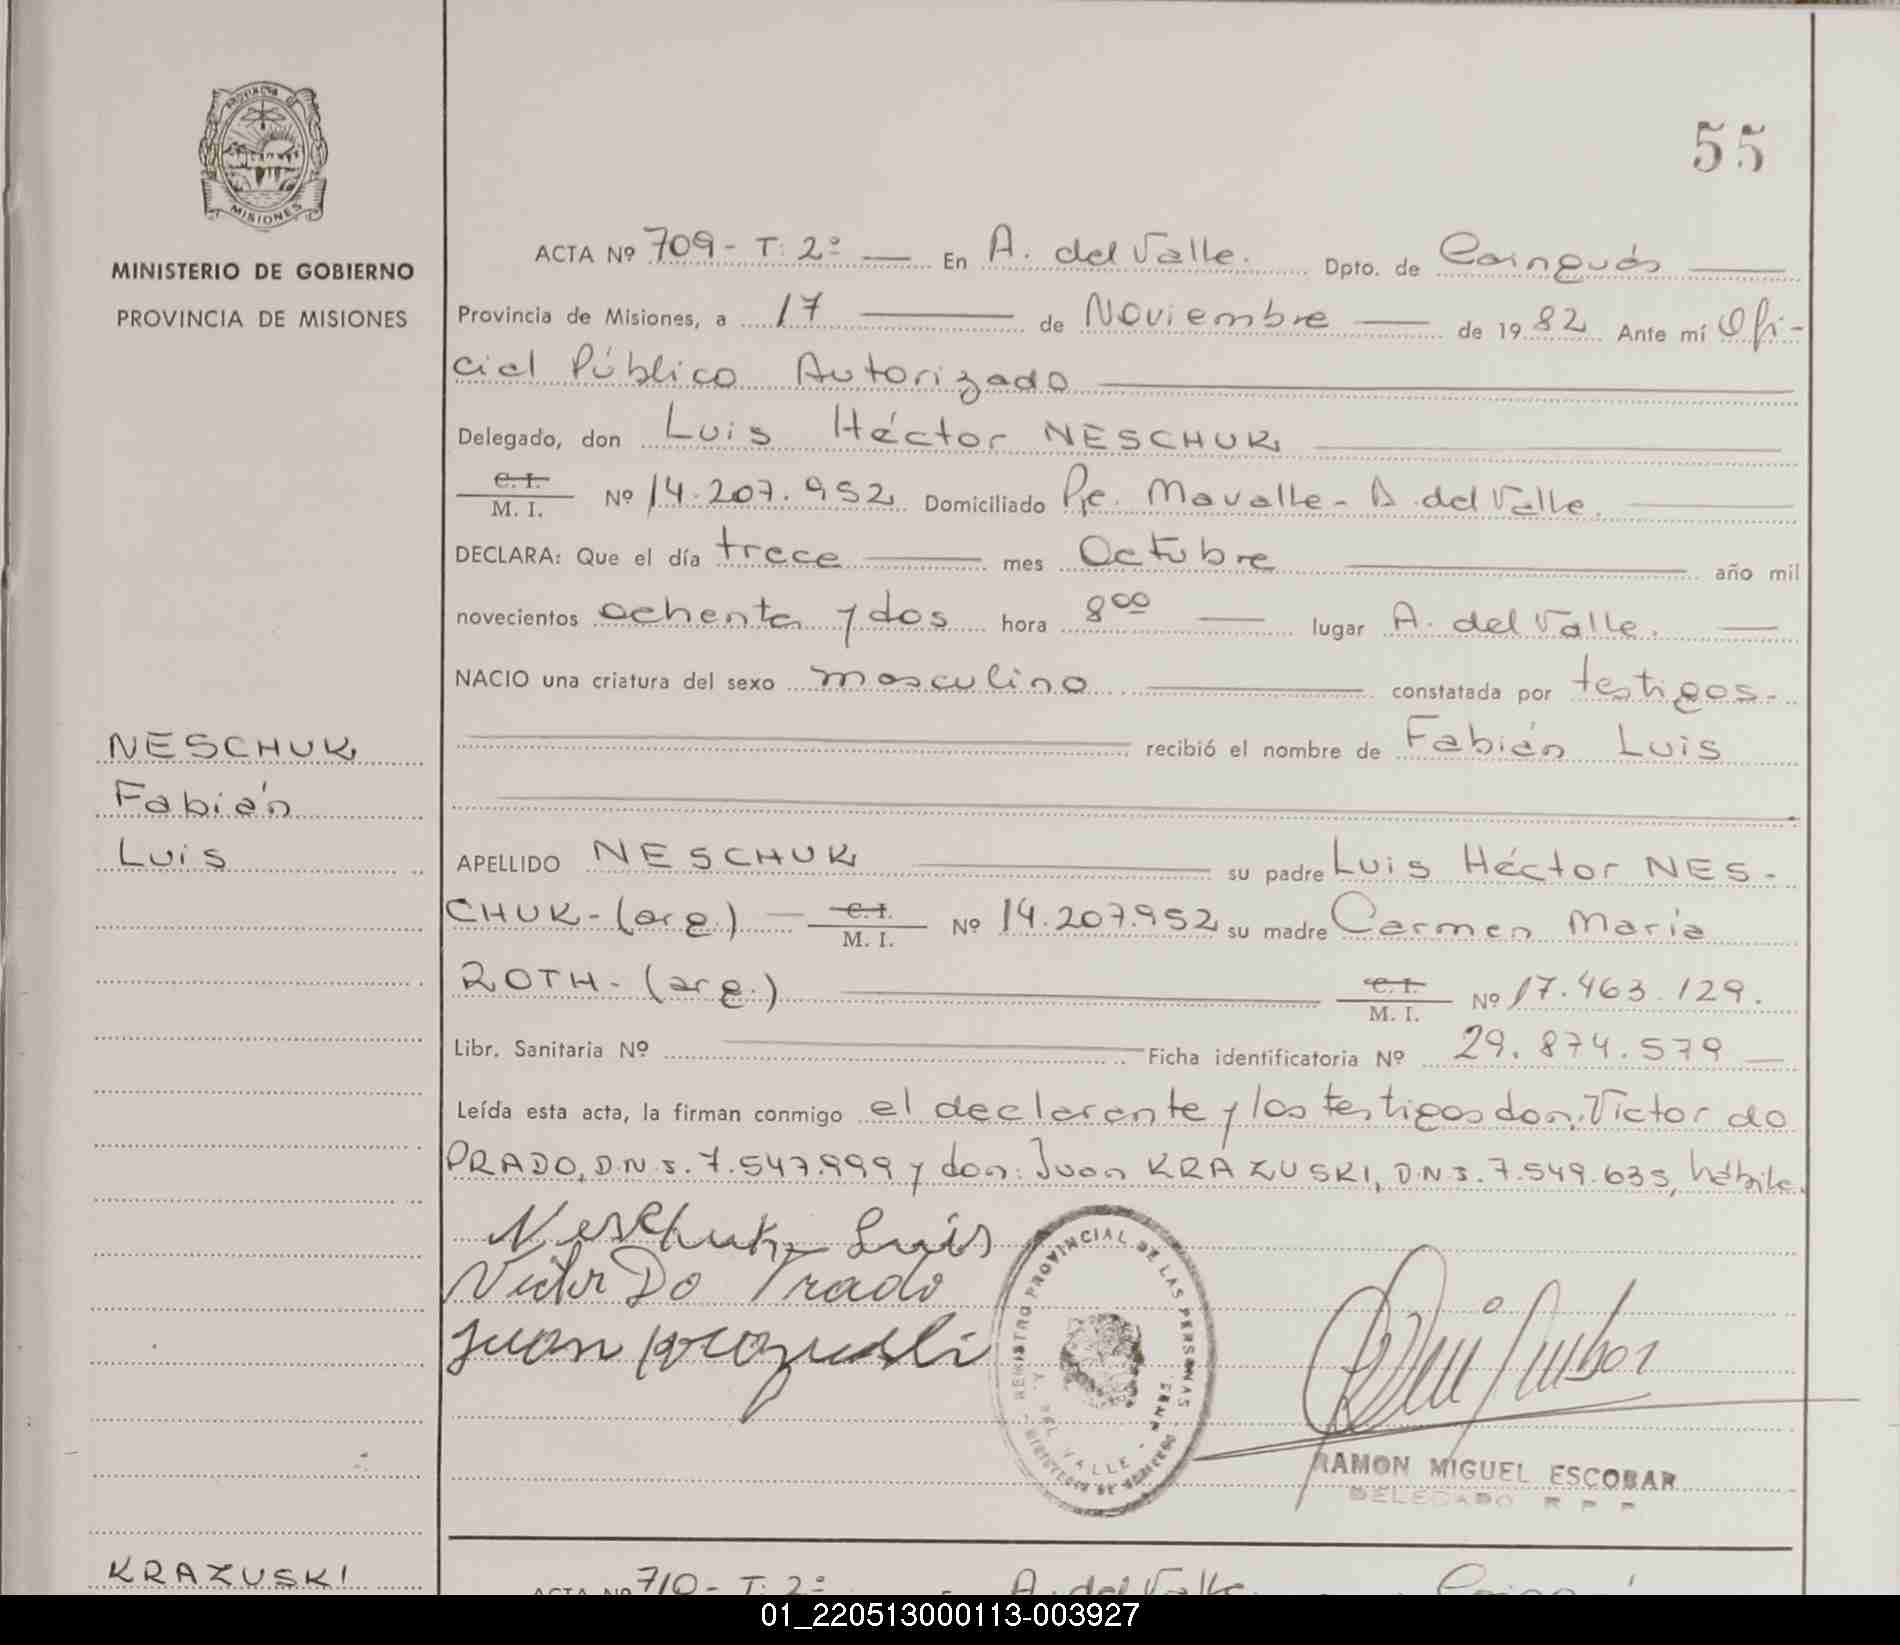 PROVINCIA DE
MISIONES
MINISTERIO DE GOBIERNO
PROVINCIA DE MISIONES
NESCHUK
Fabián
Luis
KRAZUSKI
55
ACTA Nº 709 - T: 2º — En A. del Valle. Dpto. de Cainguás —
Provincia de Misiones, a 17 — de Noviembre — de 1982 Ante mí Ofi-
cial Público Autorizado —
Delegado, don Luis Héctor NESCHUK —
C. I.
M. I. Nº 14.207.952 Domiciliado Pje. Mavalle - A. del Valle. —
DECLARA: Que el día trece — mes Octubre — año mil
novecientos ochenta y dos hora 8 00 — lugar A. del Valle. —
NACIO una criatura del sexo masculino — constatada por testigos.-
— recibió el nombre de Fabián Luis
—
APELLIDO NESCHUK — su padre Luis Héctor NES-
CHUK - (arg.) — C. I. M. I. Nº 14.207.952 su madre Carmen María
ROTH - (arg.) — C. I. M. I. Nº 17.463.129.
Libr. Sanitaria Nº — Ficha identificatoria Nº 29.874.579 —
Leída esta acta, la firman conmigo el declarante y los testigos don: Victor do
PRADO, D.N.I. 7.547.999 y don: Juan KRAZUSKI, D.N.I. 7.549.635, hábile.
Neschuk Luis
Victor Do Prado
Juan Krazuski
REGISTRO PROVINCIAL DE LAS PERSONAS
DEL VALLE
RAMON MIGUEL ESCOBAR
DELEGADO R P P
ACTA Nº 710 - T: 2º A. del Valle
01_220513000113-003927